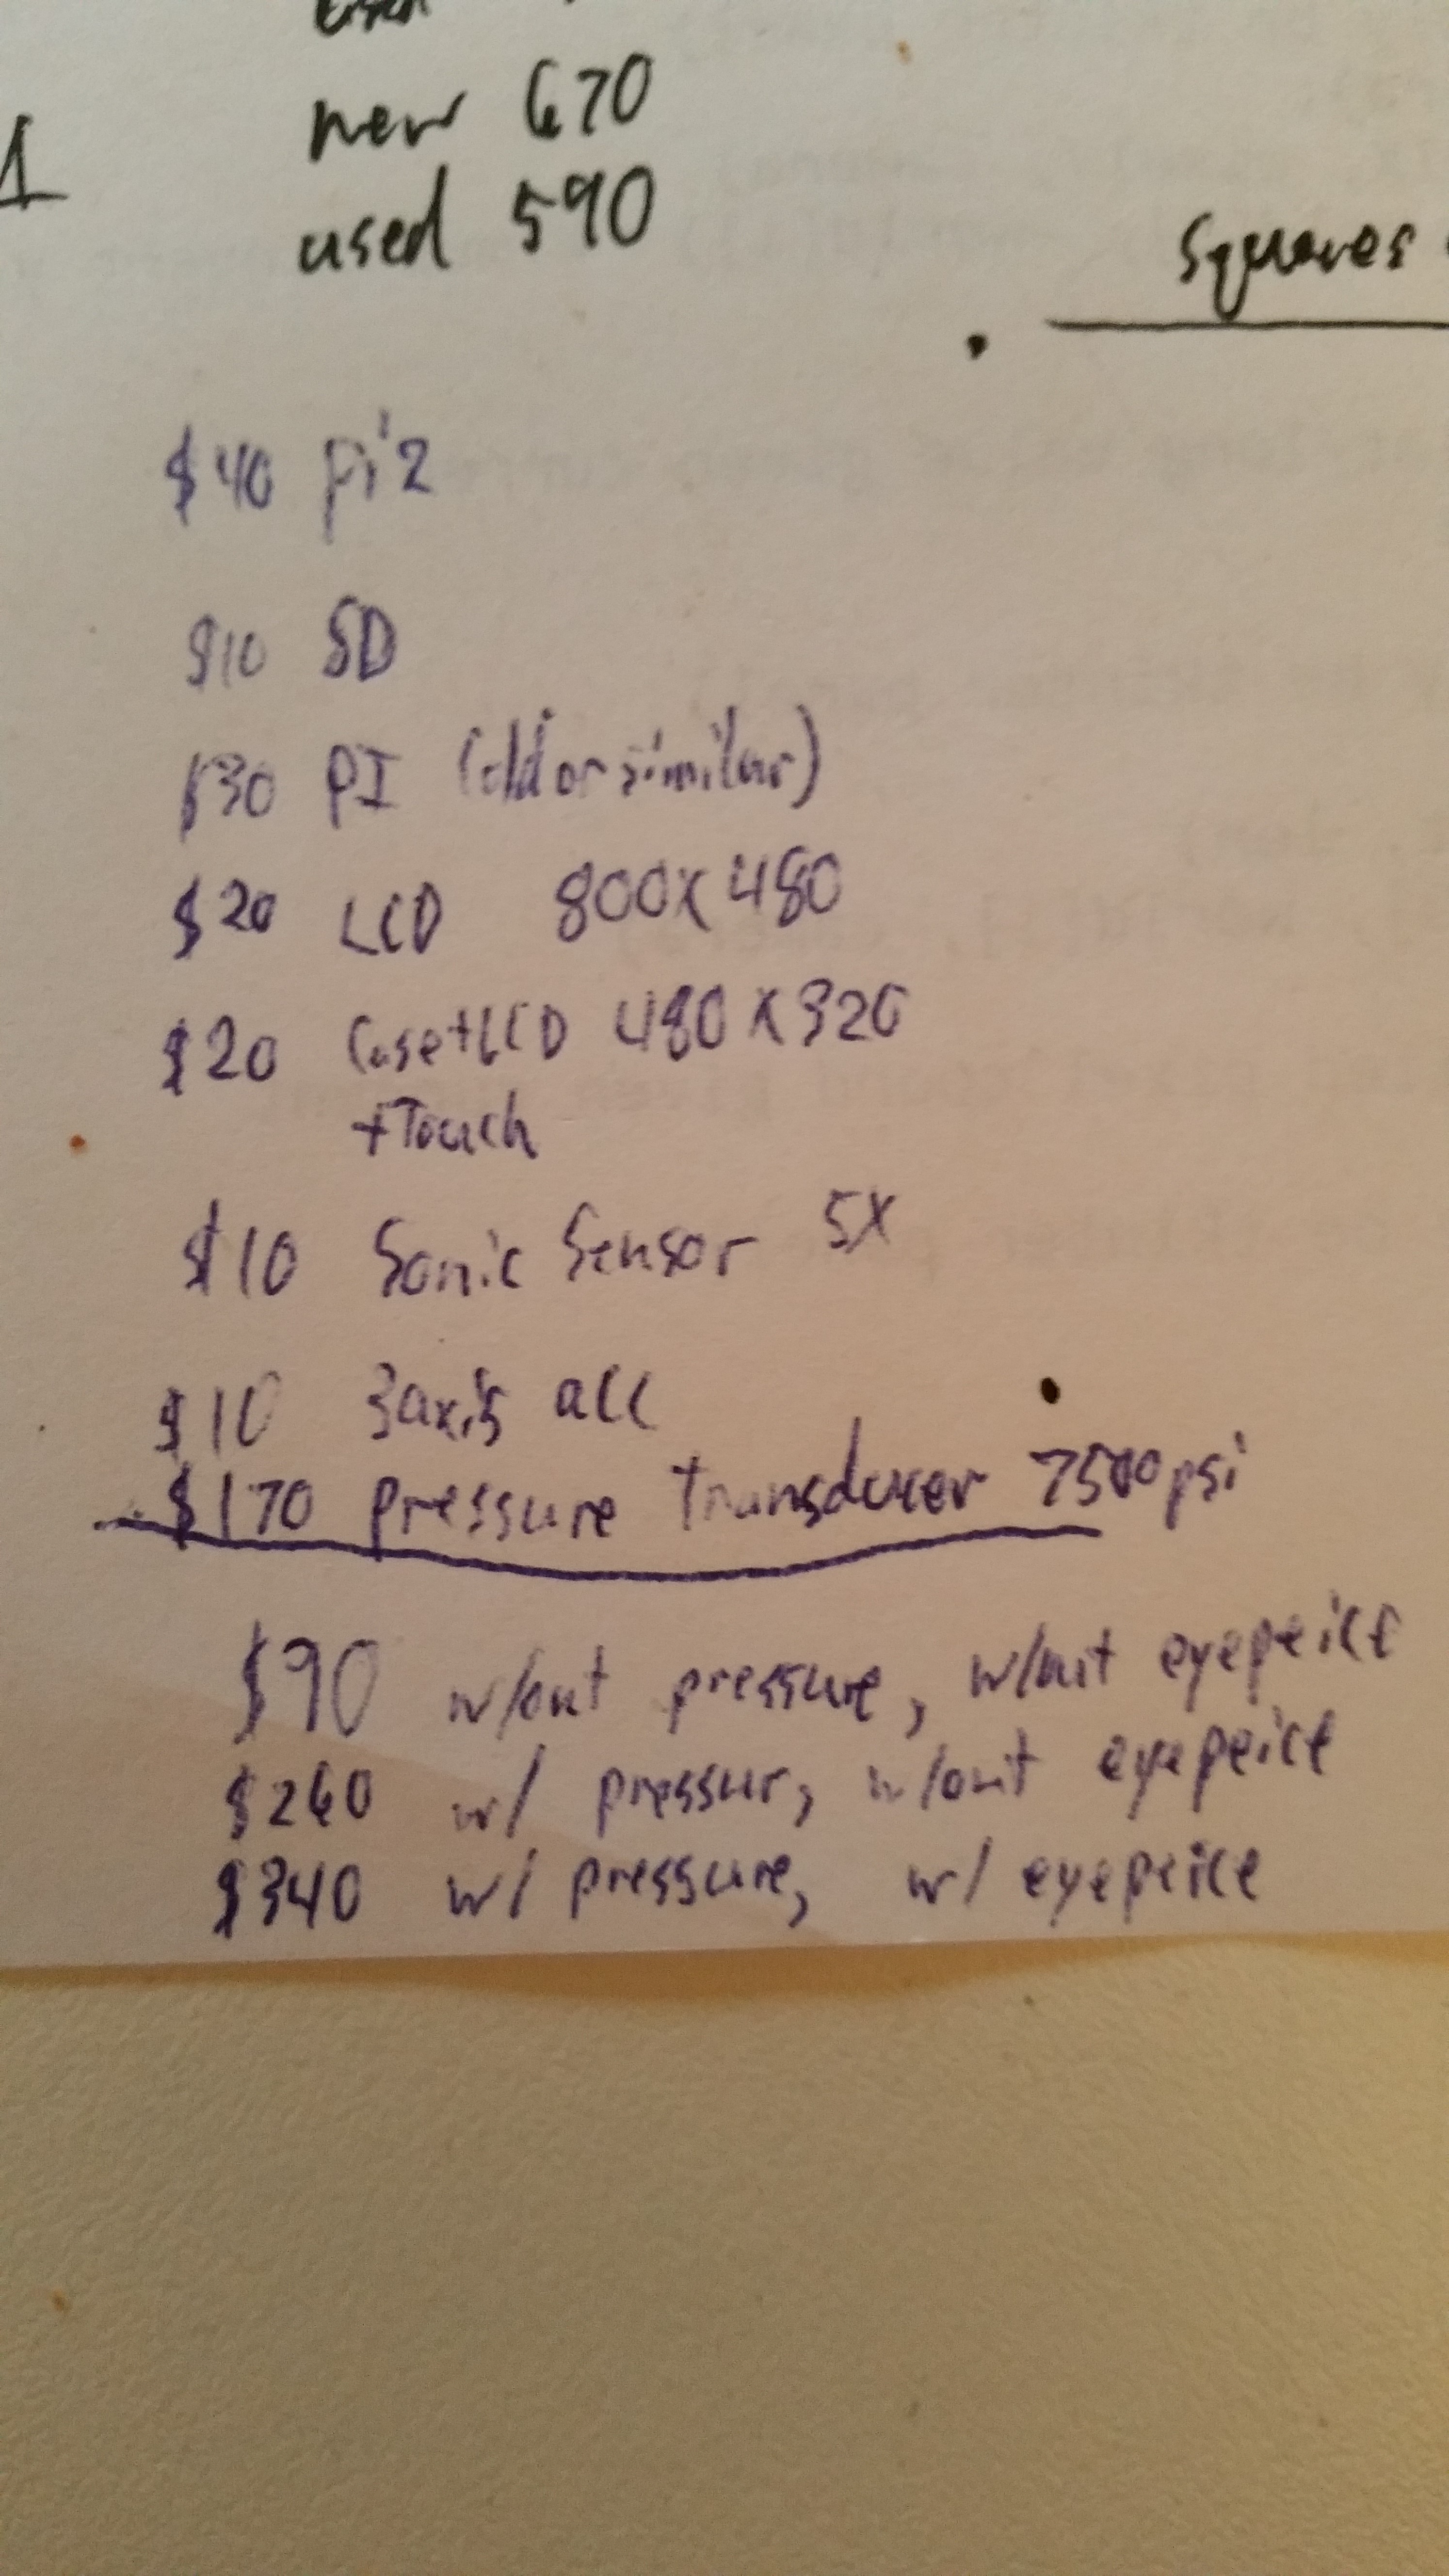 used
new 670
used 590
1
squares
$40 Pi 2
$10 SD
$30 PI (old or similar)
$20 LCD 800x480
$20 Case+LCD 480x320
+Touch
$10 Sonic Sensor 5X
$10 3axis acc
$170 pressure transducer 7500psi
$90 w/out pressure, w/out eyepeice
$260 w/ pressur, w/out eyepeice
$340 w/ pressure, w/ eyepeice